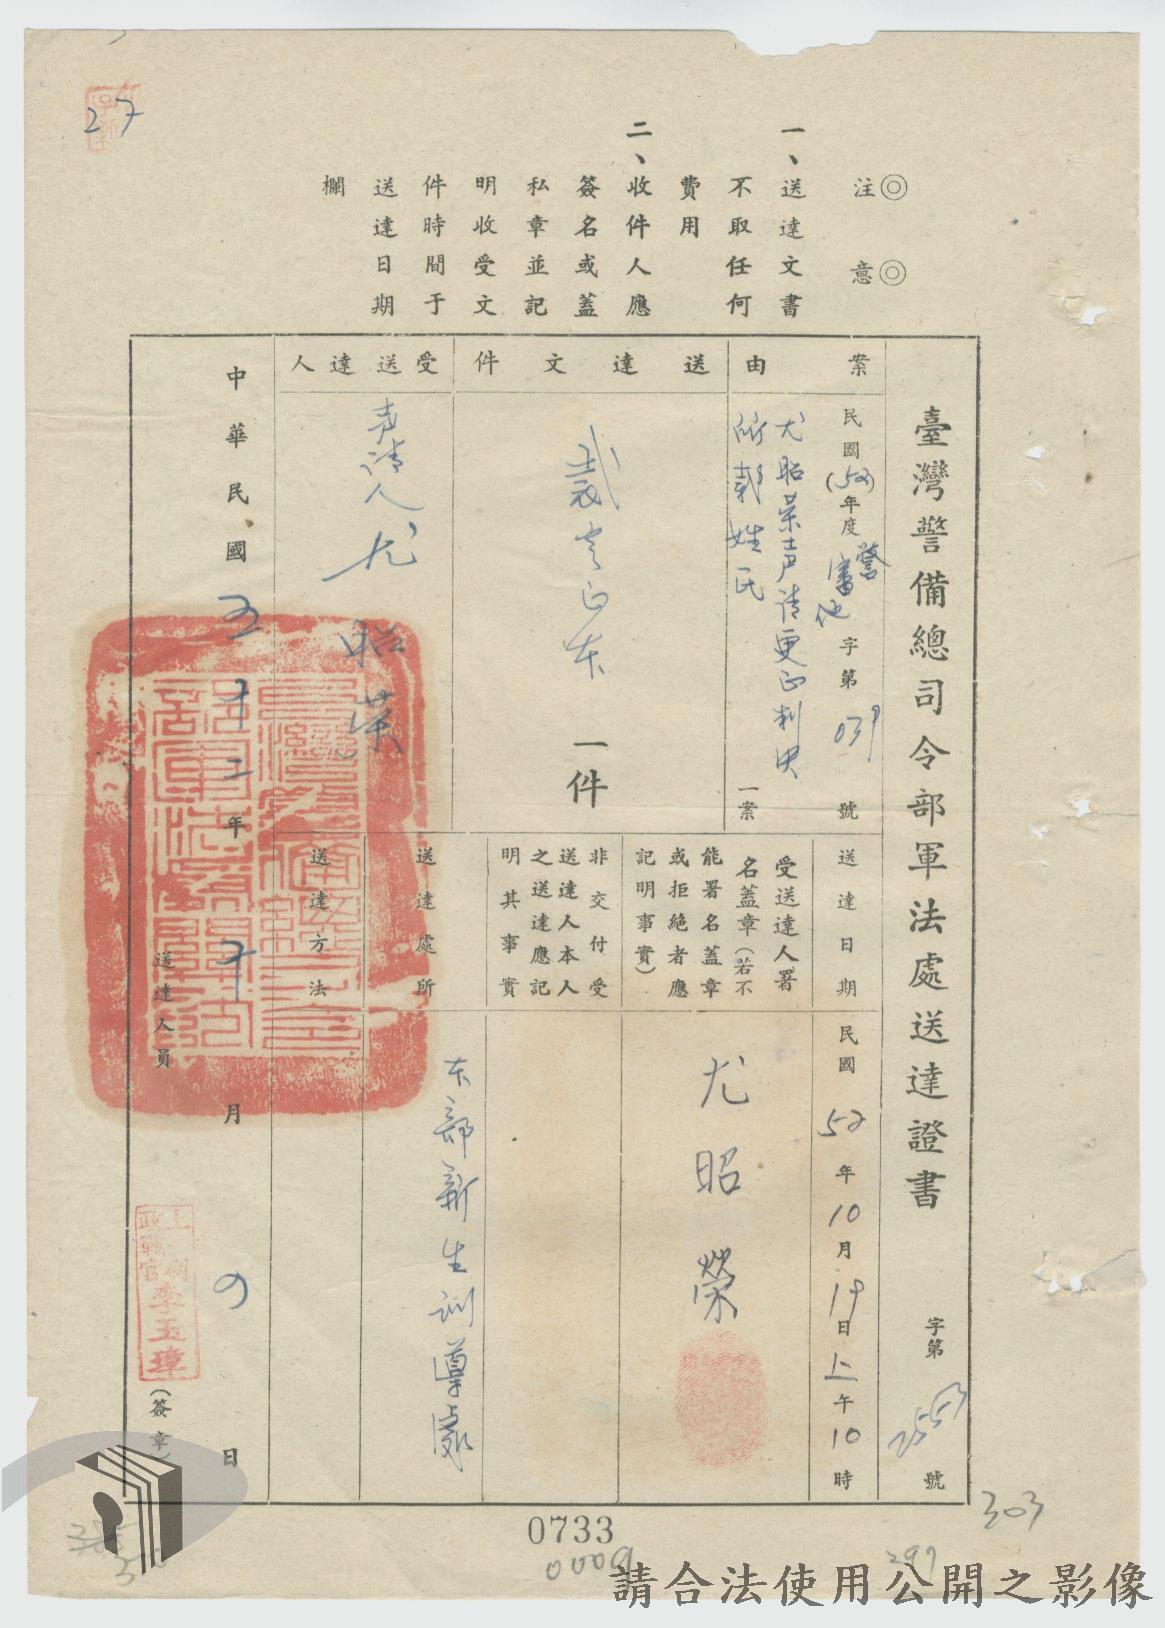 27
◎注意◎
一、送達文書
不取任何
費用
二、收件人應
簽名或蓋
私章並記
明收受文
件時間于
送達日期
欄
臺灣警備總司令部軍法處送達證書
字第2553號
案由
民國(52)年度警審他字第039號
尤昭荣声請更正判决
所載姓氏
一案
送達文件
裁定正本
一件
受送達人
声請人尤昭荣
送達日期
民國52年10月19日上午10時
受送達人署
名蓋章(若不
能署名蓋章
或拒絕者應
記明事實)
尤昭榮
非交付受
送達人本人
之送達應記
明其事實
送達處所
本部新生訓導處
送達方法
中華民國五十二年十月
日
送達人員
李玉璋
(簽章)
0733
303
297
請合法使用公開之影像